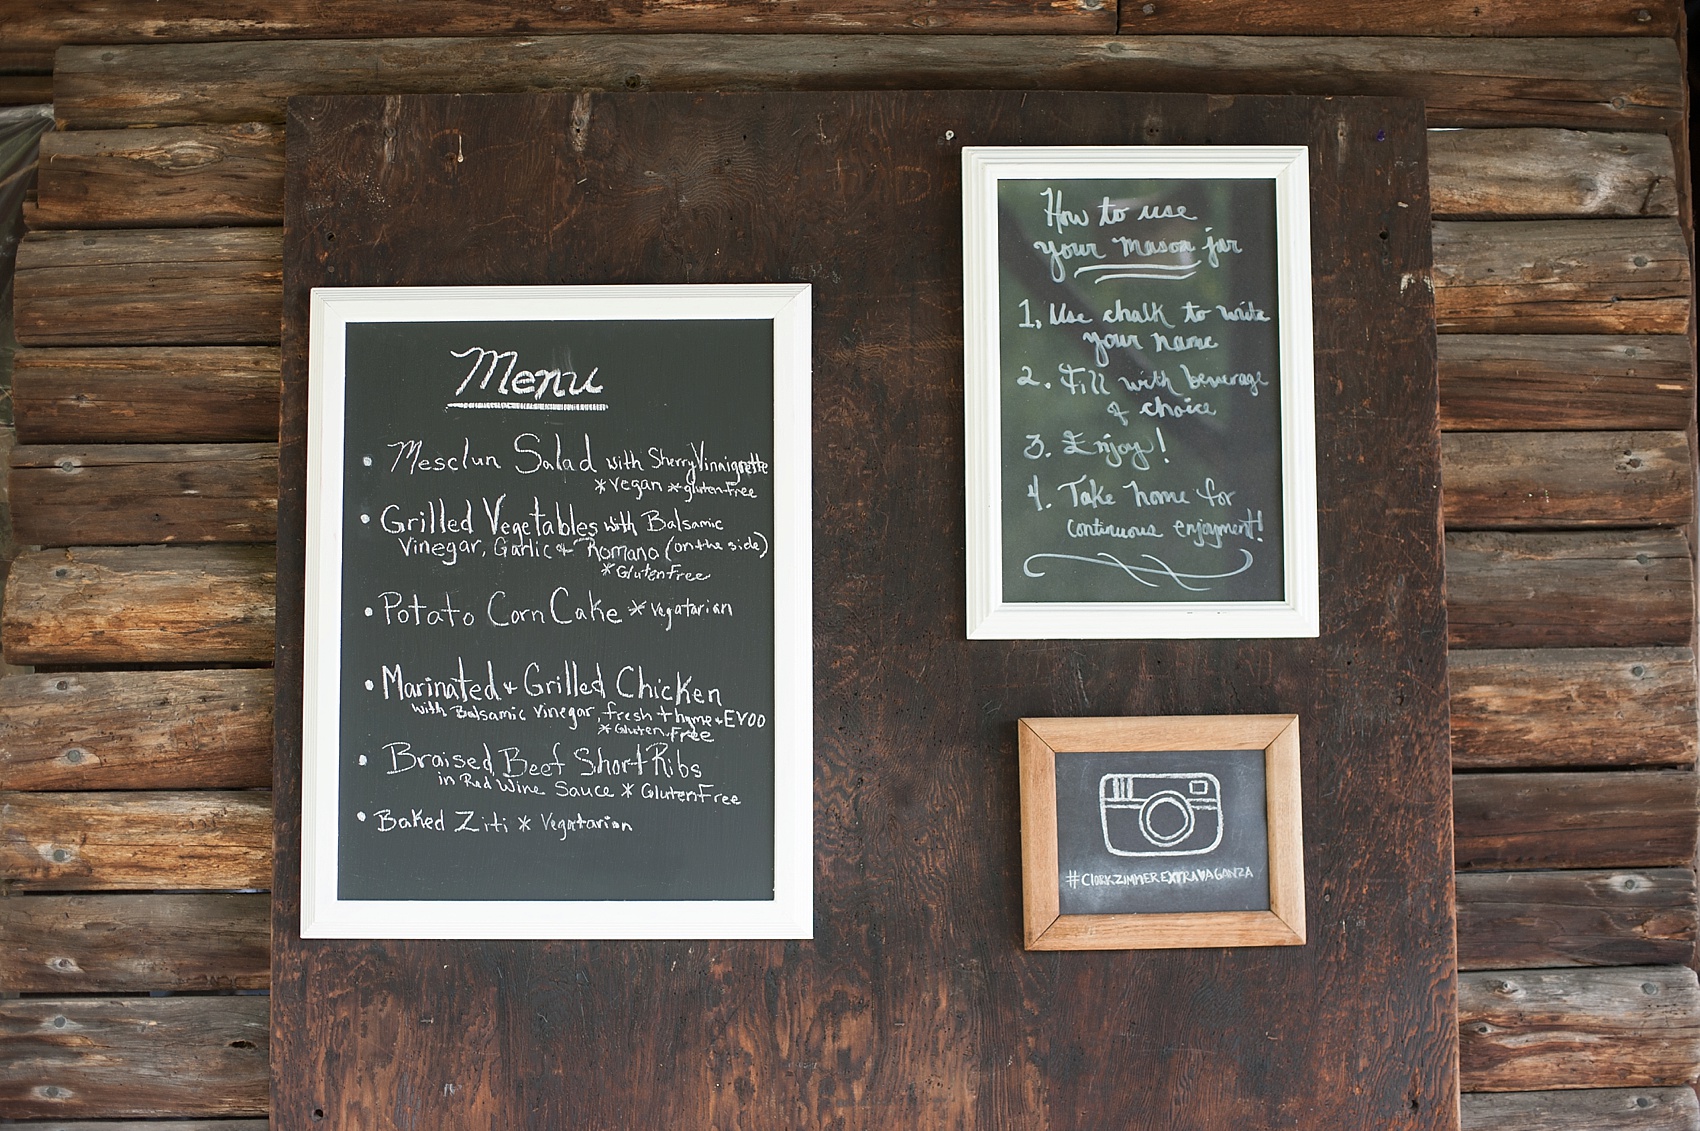 Menu
• Mesclun Salad with Sherry Vinnaigrette
* vegan * gluten free
• Grilled Vegetables with Balsamic
Vinegar, Garlic + Romano (on the side)
* Gluten Free
• Potato Corn Cake * Vegatarian
• Marinated + Grilled Chicken
with Balsamic Vinegar, fresh thyme + EVOO
* Gluten Free
• Braised Beef Short Ribs
in Red Wine Sauce * Gluten Free
• Baked Ziti * Vegatarian
How to use
your mason jar
1. Use chalk to write
your name
2. Fill with beverage
of choice
3. Enjoy!
4. Take home for
continuous enjoyment!
#CLARKZIMMEREXTRAVAGANZA